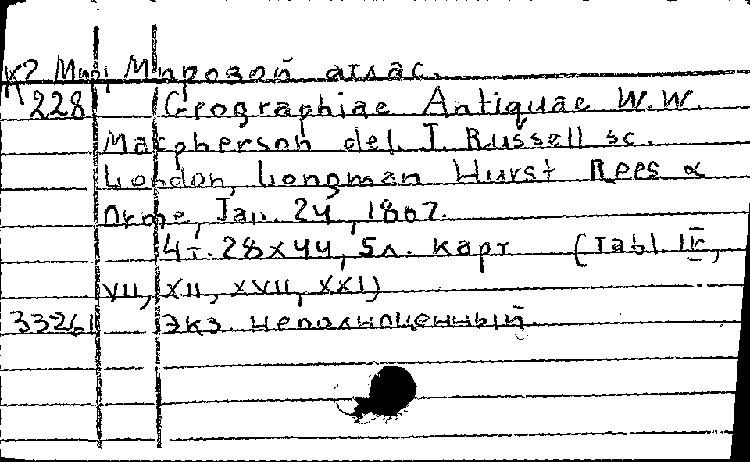 К2 Мир, Мировой атлас.
228 Geographiae Antiquae W.W.
Macpherson del. J. Russell sc.
London, Longman Hurst Rees &
Orme, Jan. 24, 1807.
4т. 28x44, 5л. карт (Tabl. IV,
VII, XII, XVII, XXI)
33261 Экз. неполноценный